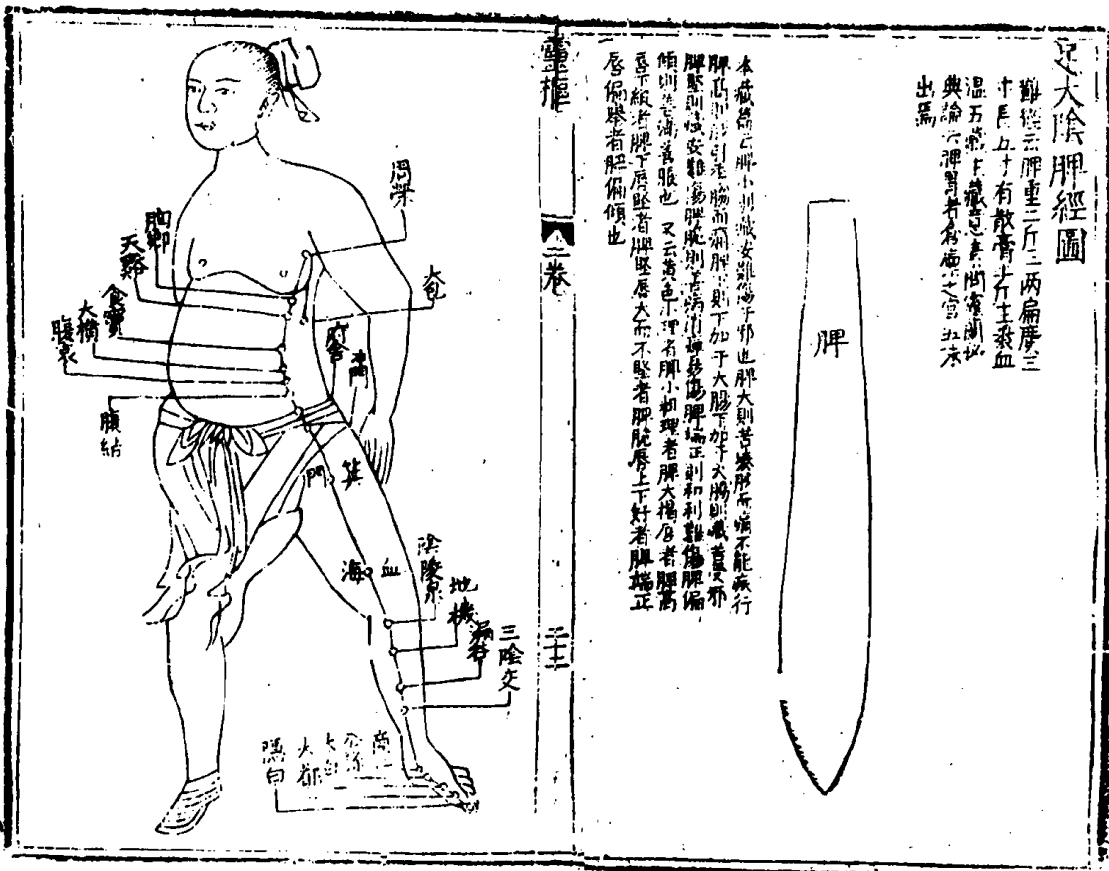 足太陰脾經圖
難經云脾重二斤三两扁廣三
寸長五寸有散膏半斤主裹血
溫五藏主藏意素問靈蘭秘
典論云脾胃者倉廩之官五味
出焉
脾
本藏篇云脾小則藏安難傷于邪也脾大則苦湊䏚而痛不能疾行
脾高則䏚引季脇而痛脾下則下加于大腸下加于大腸則藏苦受邪
脾堅則藏安難傷脾脆則善病消癉易傷脾端正則和利難傷脾偏
傾則善滿善脹也 又云黄色小理者脾小粗理者脾大揭唇者脾高
唇下縱者脾下唇堅者脾堅唇大而不堅者脾脆唇上下好者脾端正
唇偏舉者脾偏傾也
靈樞
二卷
二十二
周榮
大包
胸鄉
天谿
食竇
大橫
腹哀
腹結
府舍
衝門
箕門
血海
陰陵泉
地機
漏谷
三陰交
商
公孫
太白
大都
隱白